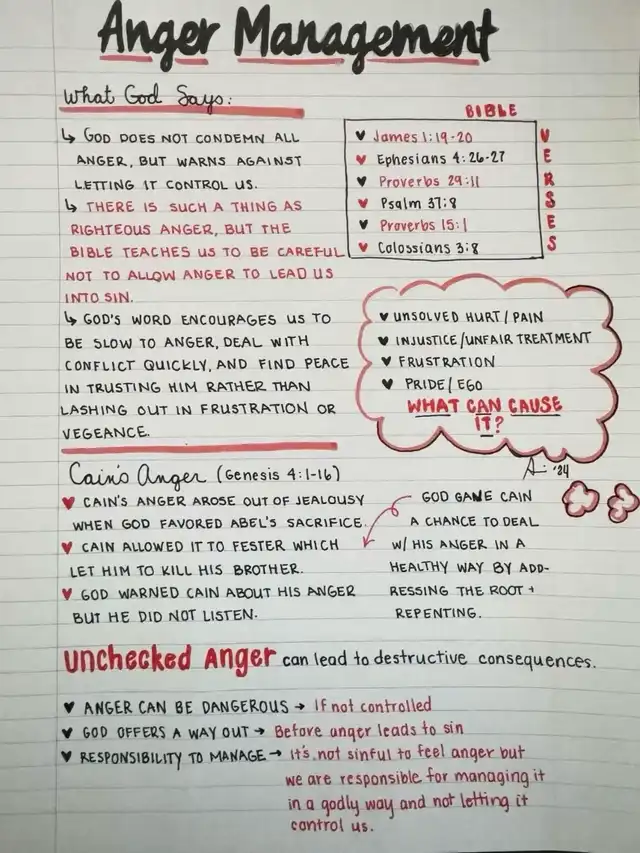 Anger Management
What God Says:
↳ GOD DOES NOT CONDEMN ALL
ANGER, BUT WARNS AGAINST
LETTING IT CONTROL US.
↳ THERE IS SUCH A THING AS
RIGHTEOUS ANGER, BUT THE
BIBLE TEACHES US TO BE CAREFUL
NOT TO ALLOW ANGER TO LEAD US
INTO SIN.
↳ GOD'S WORD ENCOURAGES US TO
BE SLOW TO ANGER, DEAL WITH
CONFLICT QUICKLY, AND FIND PEACE
IN TRUSTING HIM RATHER THAN
LASHING OUT IN FRUSTRATION OR
VEGEANCE.
BIBLE
VERSES
♥ James 1:19-20
♥ Ephesians 4:26-27
♥ Proverbs 29:11
♥ Psalm 37:8
♥ Proverbs 15:1
♥ Colossians 3:8
♥ UNSOLVED HURT/PAIN
♥ INJUSTICE/UNFAIR TREATMENT
♥ FRUSTRATION
♥ PRIDE/EGO
WHAT CAN CAUSE
IT?
Cain's Anger (Genesis 4:1-16)
♥ CAIN'S ANGER AROSE OUT OF JEALOUSY
WHEN GOD FAVORED ABEL'S SACRIFICE.
♥ CAIN ALLOWED IT TO FESTER WHICH
LET HIM TO KILL HIS BROTHER.
♥ GOD WARNED CAIN ABOUT HIS ANGER
BUT HE DID NOT LISTEN.
GOD GAVE CAIN
A CHANCE TO DEAL
W/ HIS ANGER IN A
HEALTHY WAY BY ADD-
RESSING THE ROOT +
REPENTING.
Unchecked Anger can lead to destructive consequences.
♥ ANGER CAN BE DANGEROUS → If not controlled
♥ GOD OFFERS A WAY OUT → Before anger leads to sin
♥ RESPONSIBILITY TO MANAGE → It's not sinful to feel anger but
we are responsible for managing it
in a godly way and not letting it
control us.